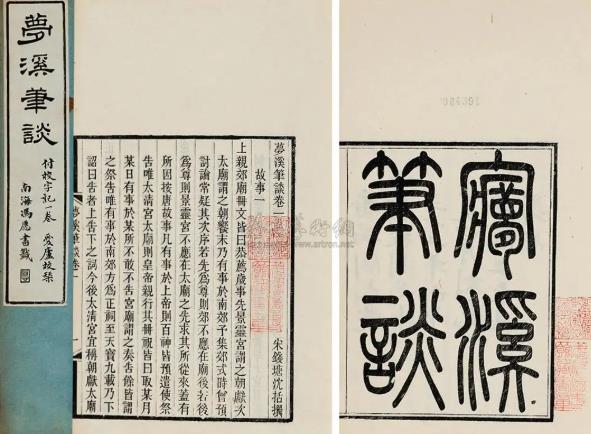 夢溪筆談
付校字記一卷
南海馮應書籤
夢溪筆談卷一
宋錢塘沈括撰
故事一
上親郊廟冊文皆曰恭薦歲事先景靈宮謂之朝獻次
太廟謂之朝饗末乃有事於南郊予集郊式時曾預
討論常疑其次序若先為尊則郊不應在廟後若後
為尊則景靈宮不應在太廟之先求其所從來蓋有
所因按唐故事凡有事於上帝則百神皆預遣使祭
告唯太清宮太廟則皇帝親行其冊祝皆曰取某月
某日有事於某所不敢不告宮廟謂之奏告餘皆謂
之祭告唯有事於南郊方為正祠至天寶九載乃下
詔曰告者上告下之詞今後太清宮宜稱朝獻太廟
夢溪筆談卷一
一
㝱溪
筆談
www.artron.net